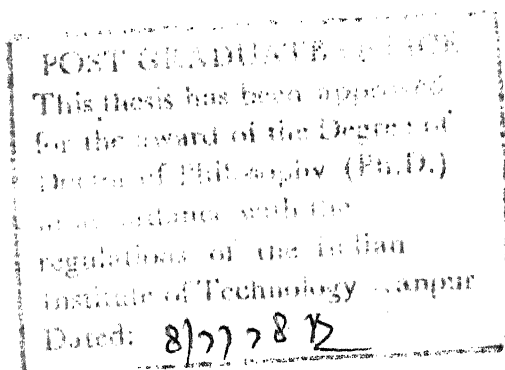 POST GRADUATE OFFICE
This thesis has been approved
for the award of the Degree of
Doctor of Philosophy (Ph.D.)
in accordance with the
regulations of the Indian
Institute of Technology Kanpur
Dated: